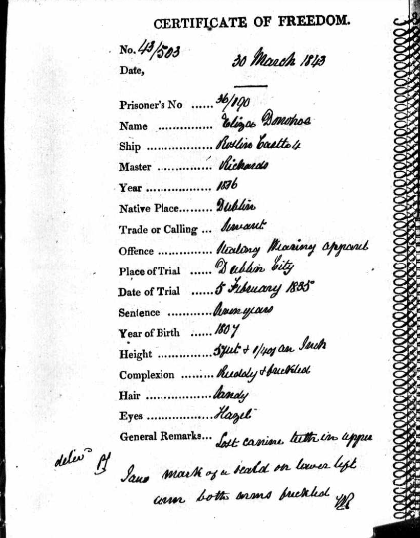 CERTIFICATE OF FREEDOM.
No. 43/503
Date, 30 March 1843
Prisoner's No ...... 36/190
Name ............... Eliza Donohoe
Ship ................. Roslin Castle
Master .............. Richards
Year ................. 1836
Native Place......... Dublin
Trade or Calling ... Servant
Offence .............. Stealing Wearing apparel
Place of Trial ...... Dublin City
Date of Trial ...... 5 February 1835
Sentence ............ Seven years
Year of Birth ...... 1807
Height ............... 5 feet & 1/4 of an Inch
Complexion ......... Ruddy & freckled
Hair .................. Sandy
Eyes .................. Hazel
General Remarks... Lost canine tooth in upper
Jaw mark of a scald on lower left
arm both arms freckled